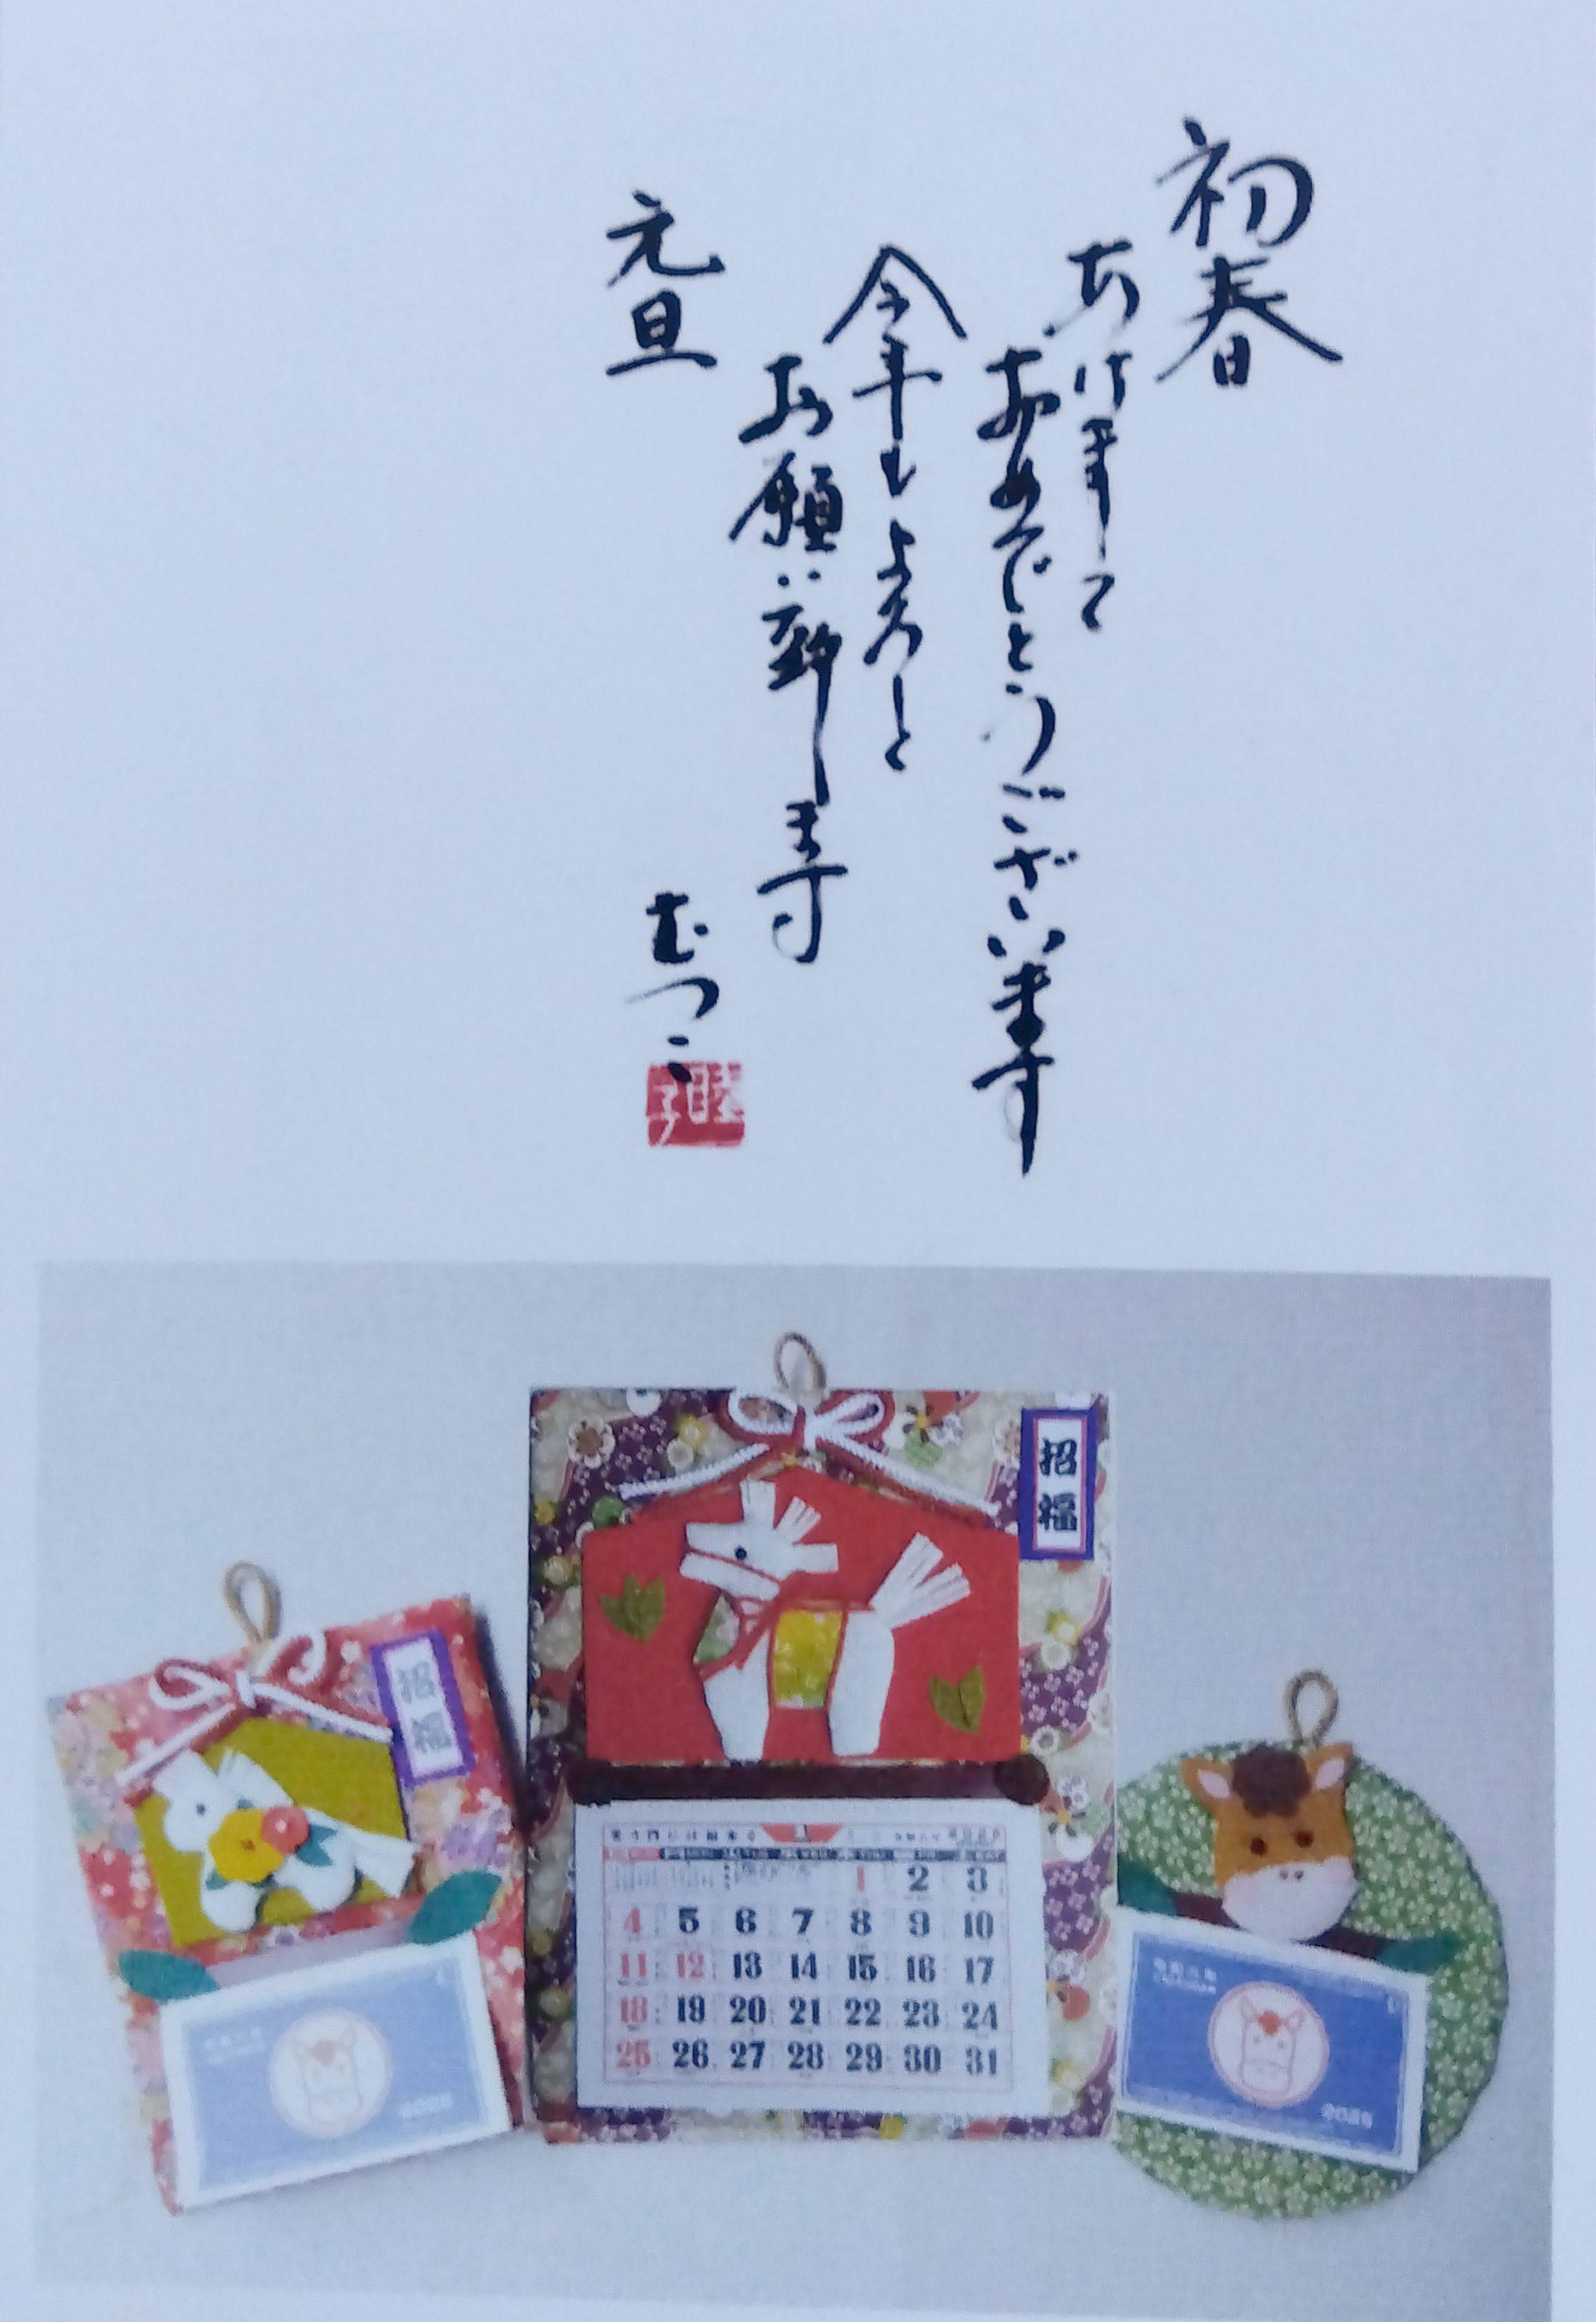 初春
あけまして
おめでとうございます
今年もよろしく
お願い致します
元旦
むつこ
睦子
招福
招福
1 2 3
4 5 6 7 8 9 10
11 12 13 14 15 16 17
18 19 20 21 22 23 24
25 26 27 28 29 30 31
2026